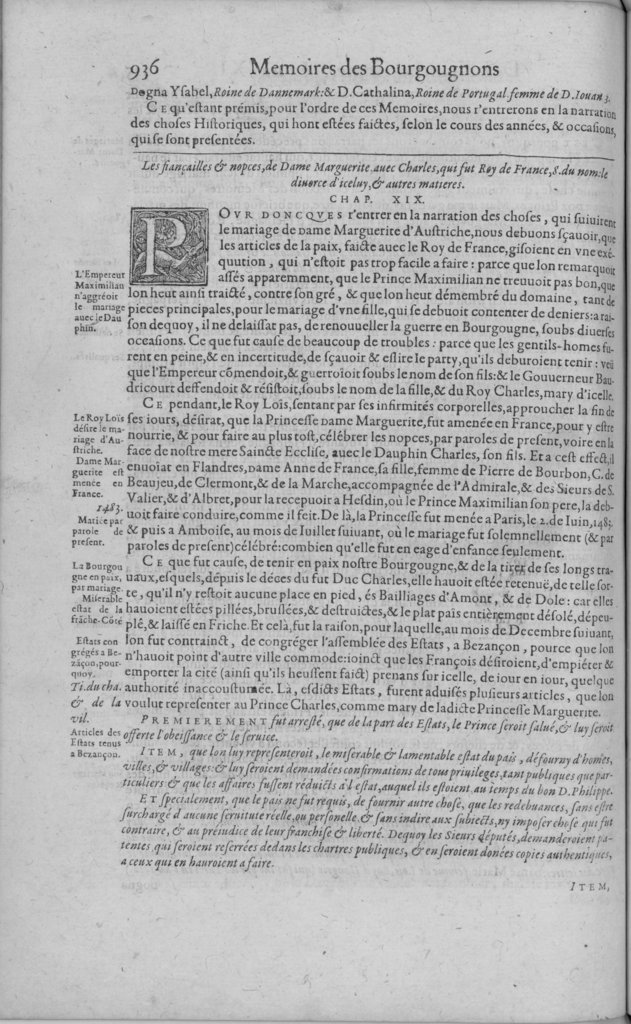 936 Memoires des Bourgougnons
Dogna Yſabel, Roine de Dannemark: & D. Cathalina, Roine de Portugal femme de D. Iouan 3.
CE qu'eſtant prémis, pour l'ordre de ces Memoires, nous r'entrerons en la narration
des choſes Hiſtoriques, qui hont eſtées faictes, ſelon le cours des années, & occaſions,
qui ſe ſont preſentées.
Les fiançailles & nopces, de Dame Marguerite auec Charles, qui fut Roy de France, 8. du nom: le
diuorce d'iceluy, & autres matieres.
CHAP. XIX.
POVR DONCQVES r'entrer en la narration des choſes, qui ſuiuirent
le mariage de Dame Marguerite d'Auſtriche, nous debuons ſçauoir, que
les articles de la paix, faicte auec le Roy de France, giſoient en vne exé-
quution, qui n'eſtoit pas trop facile a faire: parce que lon remarquoit
aſſés apparemment, que le Prince Maximilian ne treuuoit pas bon, que
lon heut ainſi traicté, contre ſon gré, & que lon heut démembré du domaine, tant de
pieces principales, pour le mariage d'vne fille, qui ſe debuoit contenter de deniers: a rai-
ſon dequoy, il ne delaiſſat pas, de renouueller la guerre en Bourgougne, ſoubs diuerſes
occaſions. Ce que fut cauſe de beaucoup de troubles: parce que les gentils-homes fu-
rent en peine, & en incertitude, de ſçauoir & eſlire le party, qu'ils deburoient tenir: veü
que l'Empereur cõmendoit, & guerroioit ſoubs le nom de ſon fils: & le Gouuerneur Bau-
dricourt deffendoit & réſiſtoit, ſoubs le nom de la fille, & du Roy Charles, mary d'icelle.
CE pendant, le Roy Loïs, ſentant par ſes infirmités corporelles, approucher la fin de
ſes iours, déſirat, que la Princeſſe Dame Marguerite, fut amenée en France, pour y eſtre
nourrie, & pour faire au plus toſt, célébrer les nopces, par paroles de preſent, voire en la
face de noſtre mere Saincte Eccliſe, auec le Dauphin Charles, ſon fils. Et a ceſt effect, il
enuoiat en Flandres, Dame Anne de France, ſa fille, femme de Pierre de Bourbon, C. de
Beaujeu, de Clermont, & de la Marche, accompagnée de l'Admirale, & des Sieurs de S.
Valier, & d'Albret, pour la recepuoir a Heſdin, où le Prince Maximilian ſon pere, la deb-
uoit faire conduire, comme il feit. De là, la Princeſſe fut menée a Paris, le 2. de Iuin, 1483.
& puis a Amboiſe, au mois de Iuillet ſuiuant, où le mariage fut ſolemnellement (& par
paroles de preſent) célébré: combien qu'elle fut en eage d'enfance ſeulement.
CE que fut cauſe, de tenir en paix noſtre Bourgougne, & de la tirer de ſes longs tra-
uaux, eſquels, dépuis le déces du fut Duc Charles, elle hauoit eſtée retenuë, de telle ſor-
te, qu'il n'y reſtoit aucune place en pied, és Bailliages d'Amont, & de Dole: car elles
hauoient eſtées pillées, bruſlées, & deſtroictes, & le plat païs entièrement déſolé, dépeu-
plé, & laiſſé en Friche. Et celà, fut la raiſon, pour laquelle, au mois de Decembre ſuiuant,
lon fut contrainct, de congréger l'aſſemblée des Eſtats, a Bezançon, pource que lon
n'hauoit point d'autre ville commode: ioinct que les François déſiroient, d'empiéter &
emporter la cité (ainſi qu'ils heuſſent faict) prenans ſur icelle, de iour en iour, quelque
authorité inaccouſtumée. Là, eſdicts Eſtats, furent aduiſés pluſieurs articles, que lon
voulut repreſenter au Prince Charles, comme mary de ladicte Princeſſe Marguerite.
PREMIEREMENT fut arreſté, que de la part des Eſtats, le Prince ſeroit ſalué, & luy ſeroit
offerte l'obeiſſance & le ſeruice.
ITEM, que lon luy repreſenteroit, le miſerable & lamentable eſtat du païs, défourny d'homes,
villes, & villages: & luy ſeroient demandées confirmations de tous priuileges, tant publiques que par-
ticuliers & que les affaires fuſſent réduicts à l'eſtat, auquel ils eſtoient au temps du bon D. Philippe.
ET ſpecialement, que le païs ne fut requis, de fournir autre choſe, que les redebuances, ſans eſtre
ſurchargé d'aucune ſeruitute réelle, ou perſonelle, & ſans indire aux ſubiects, ny impoſer choſe qui fut
contraire, & au préiudice de leur franchiſe & liberté. Dequoy les Sieurs députés, demanderoient pa-
tentes qui ſeroient reſerrées dedans les chartres publiques, & en ſeroient donées copies authentiques,
a ceux qui en hauroient a faire.
ITEM,
L'Empereur
Maximilian
n'aggréoit
le mariage
auec le Dau
phin.
Le Roy Loïs
déſire le ma-
riage d'Au-
ſtriche.
Dame Mar-
guerite eſt
menée en
France.
1483.
Mariee par
parole de
preſent.
La Bourgou
gne en paix,
par mariage.
Miſerable
eſtat de la
frãche-Côté
Eſtats con
grégés a Be-
zãçon, pour-
quoy.
Ti. du cha.
& de la
vil.
Articles des
Eſtats tenus
a Bezançon.